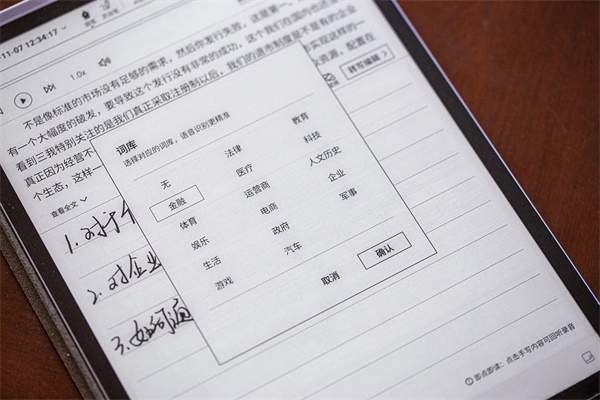 11-07 12:34:17
1.0x
不是像标准的市场没有足够的需求，然后你发行失败，这是第一，
有一个大幅度的破发，要导致这个发行没有非常的成功，这个我们在国内也还
看到三我特别关注的是我们真正采取注册制以后，我们的退市制度是不是有的企业
真正因为经营不
实现这样的一
个生态，这样一
资源，配置在
转写编辑
查看全文
词库
选择对应的词库，语音识别更精准
无
法律
教育
金融
医疗
科技
体育
运营商
人文历史
娱乐
电商
企业
生活
政府
军事
游戏
汽车
取消
确认
1.对于
2.对企业
3.如何
即点即读：点击手写内容可回听录音